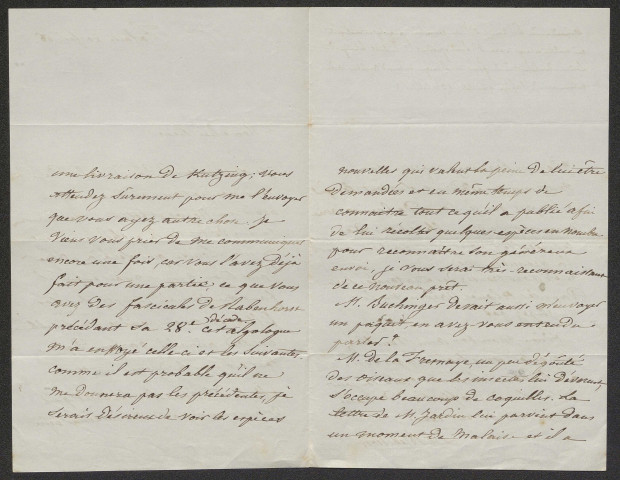 une livraison de Kutzing; vous
attendez surement pour me l'envoyer
que vous ayez autre chose. Je
viens vous prier de me communiquer
encore une fois, car vous l'avez déjà
fait pour une partie, ce que vous
avez des fascicules de Rabenhorst
précédant sa 28e décade cet algologue
m'a envoyé celle-ci et les suivantes
comme il est probable qu'il ne
me donnera pas les précédentes, je
serais désireux de voir les espèces
nouvelles qui valent la peine de lui être
demandées et en même temps de
connaitre tout ce qu'il a publié afin
de lui récolter quelques espèces en nombre
pour reconnaître son généreux
envoi, je vous serai très reconnaissant
de ce nouveau prêt.
M. Buchinger devait aussi m'envoyer
un paquet, en avez-vous entendu
parler?
M. de la Fremaye, un peu dégouté
des oiseaux que les insectes lui dévorent
s'occupe beaucoup de coquilles. La
lettre de M. Jardin lui parvint dans
un moment de malaise et il a